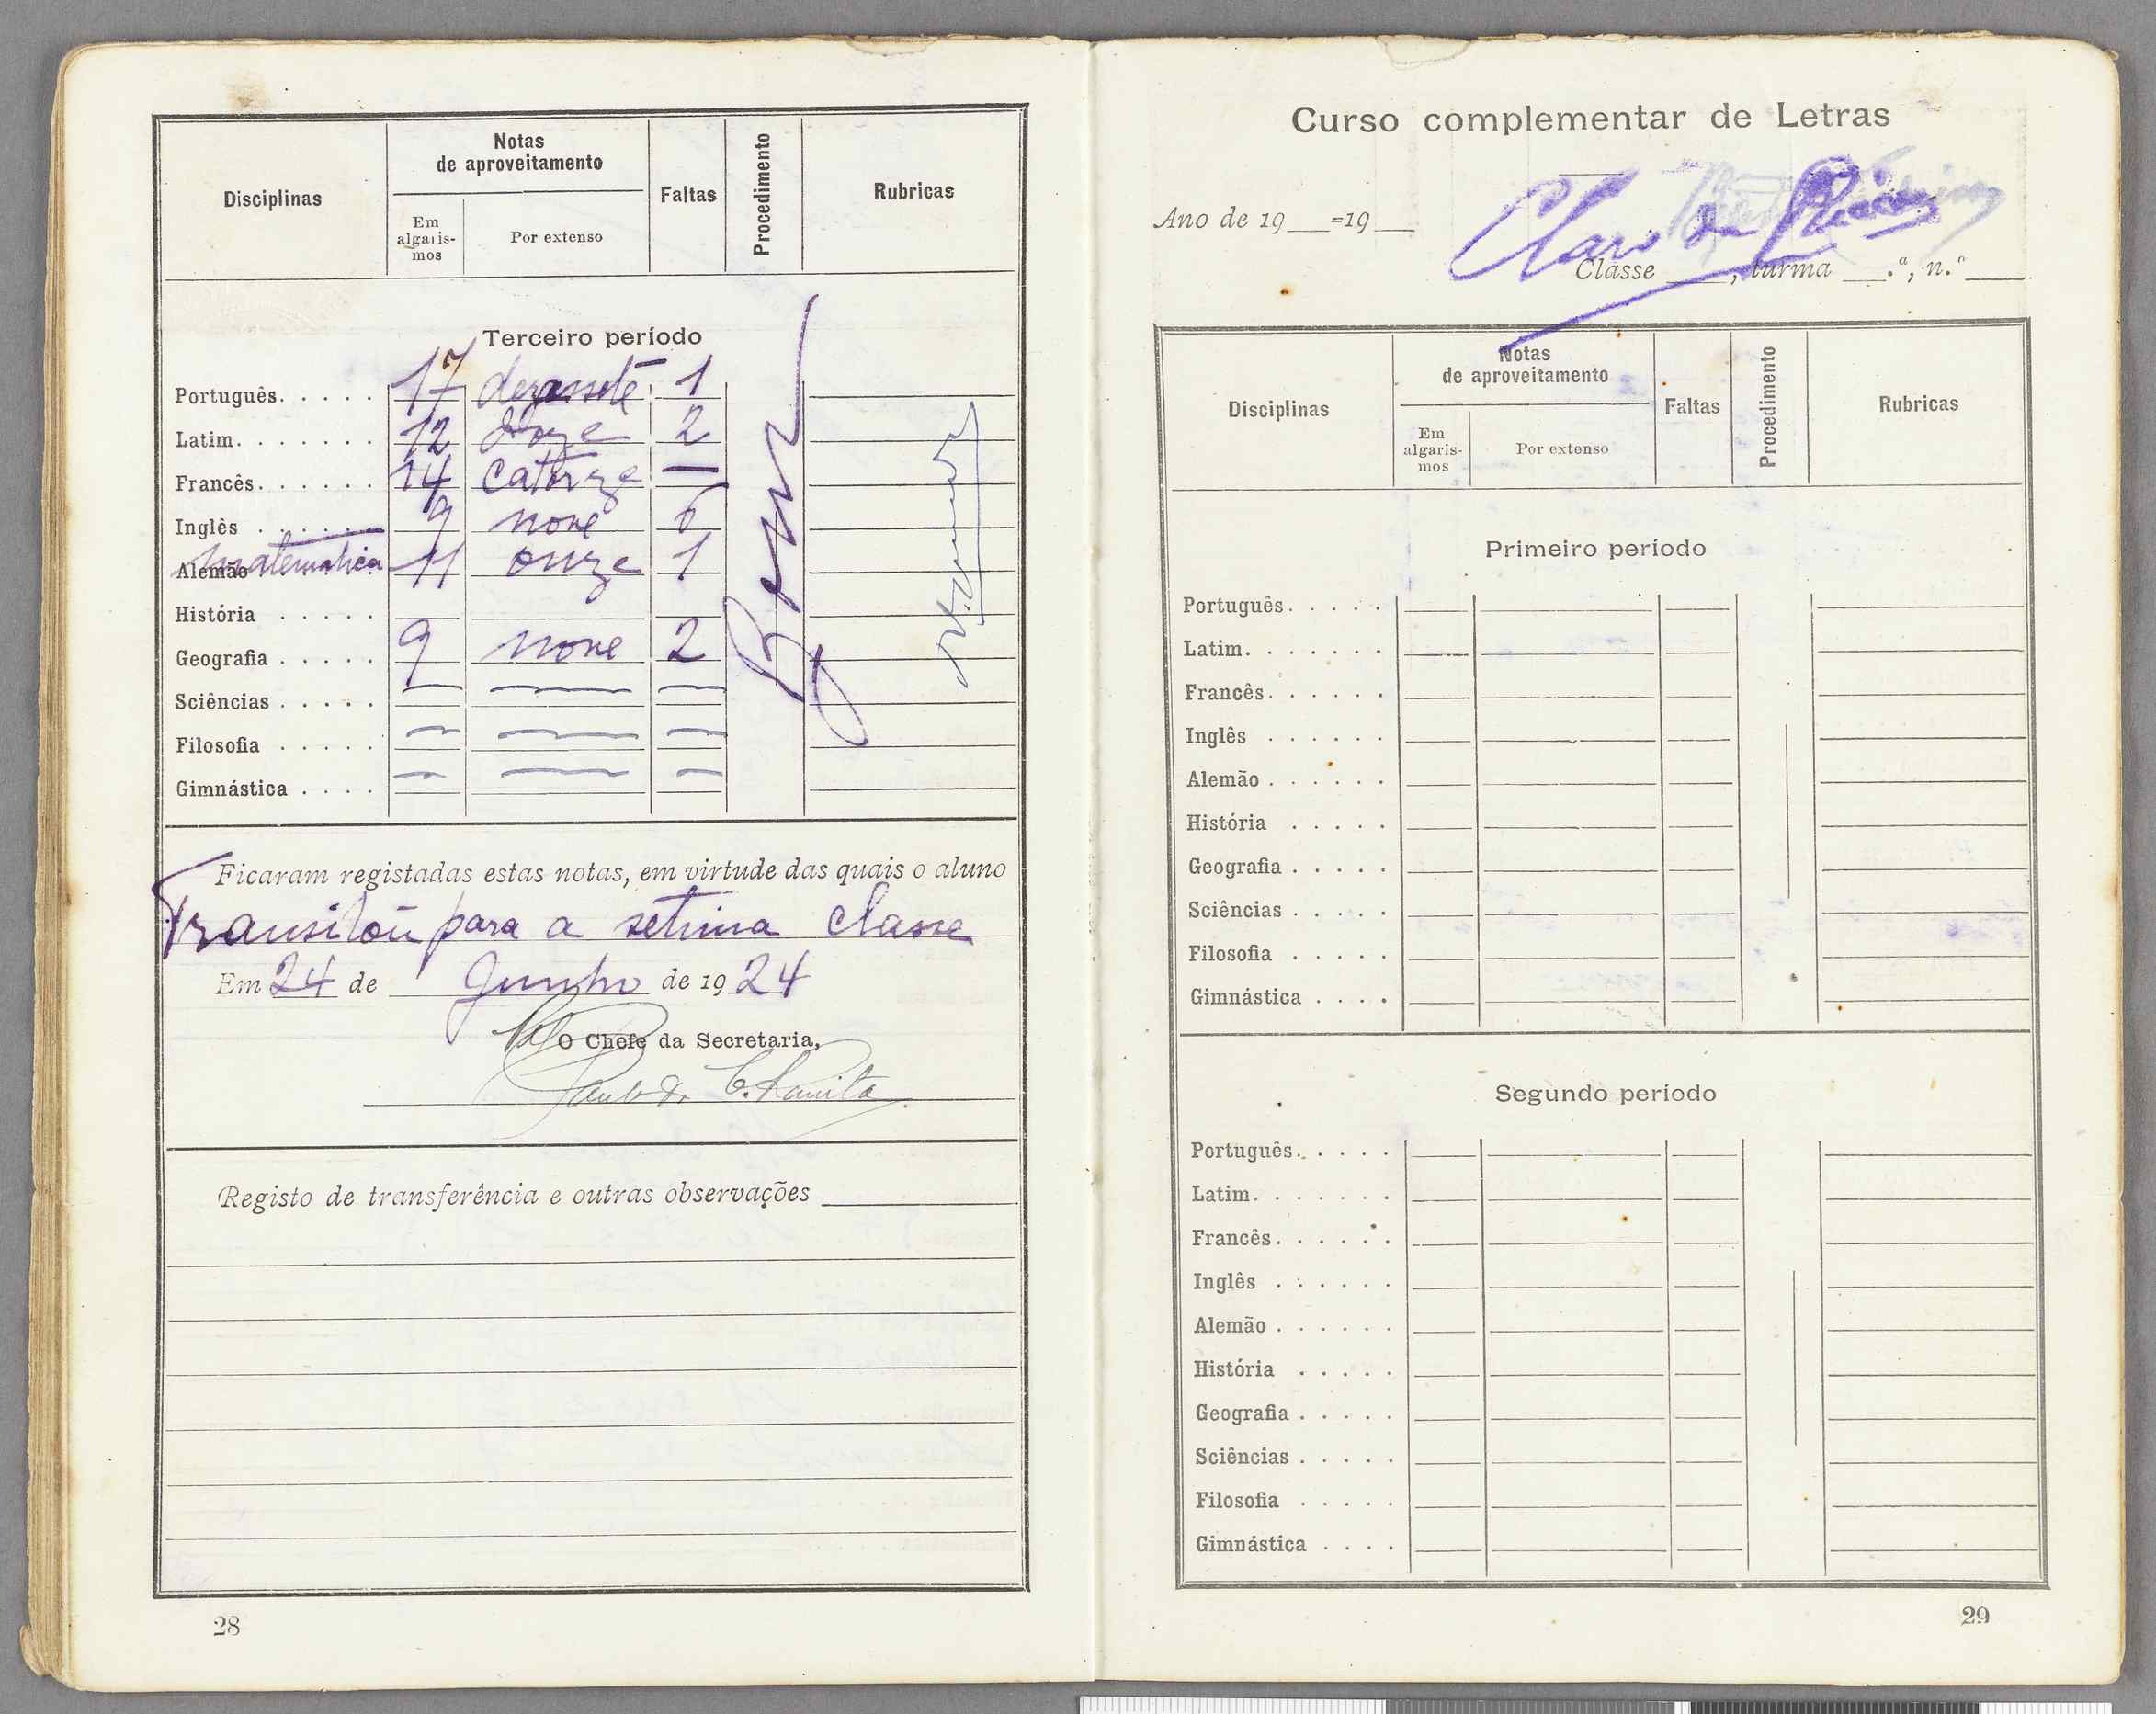 Disciplinas
Notas
de aproveitamento
Em
algaris-
mos
Por extenso
Faltas
Procedimento
Rubricas
Terceiro período
Português. . . . . 17 dezassete 1
Latim. . . . . . . 12 doze 2
Francês. . . . . . 14 catorze —
Inglês . . . . . . 9 nove 6
Alemão Matematica 11 onze 1
História . . . . .
Geografia . . . . . 9 nove 2
Sciências . . . . . — — —
Filosofia . . . . . — — —
Gimnástica . . . . — — —
Bom
Ficaram registadas estas notas, em virtude das quais o aluno
Transitou para a setima classe
Em 24 de Junho de 1924
O Chefe da Secretaria,
Registo de transferência e outras observações
28
Curso complementar de Letras
Ano de 19__=19__
Classe ____, turma ___.ª, n.º____
Disciplinas
Notas
de aproveitamento
Em
algaris-
mos
Por extenso
Faltas
Procedimento
Rubricas
Primeiro período
Português. . . . .
Latim. . . . . . .
Francês. . . . . .
Inglês . . . . . .
Alemão . . . . . .
História . . . . .
Geografia . . . . .
Sciências . . . . .
Filosofia . . . . .
Gimnástica . . . .
Segundo período
Português. . . . .
Latim. . . . . . .
Francês. . . . . .
Inglês . . . . . .
Alemão . . . . . .
História . . . . .
Geografia . . . . .
Sciências . . . . .
Filosofia . . . . .
Gimnástica . . . .
29